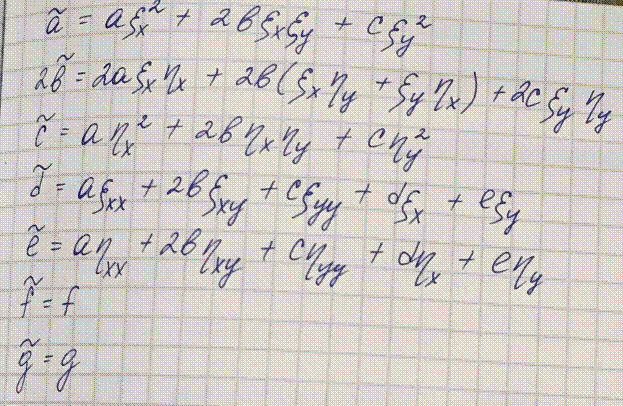 ã = aξₓ² + 2bξₓξᵧ + cξᵧ²
2b̃ = 2aξₓηₓ + 2b(ξₓηᵧ + ξᵧηₓ) + 2cξᵧηᵧ
c̃ = aηₓ² + 2bηₓηᵧ + cηᵧ²
d̃ = aξₓₓ + 2bξₓᵧ + cξᵧᵧ + dξₓ + eξᵧ
ẽ = aηₓₓ + 2bηₓᵧ + cηᵧᵧ + dηₓ + eηᵧ
f̃ = f
g̃ = g